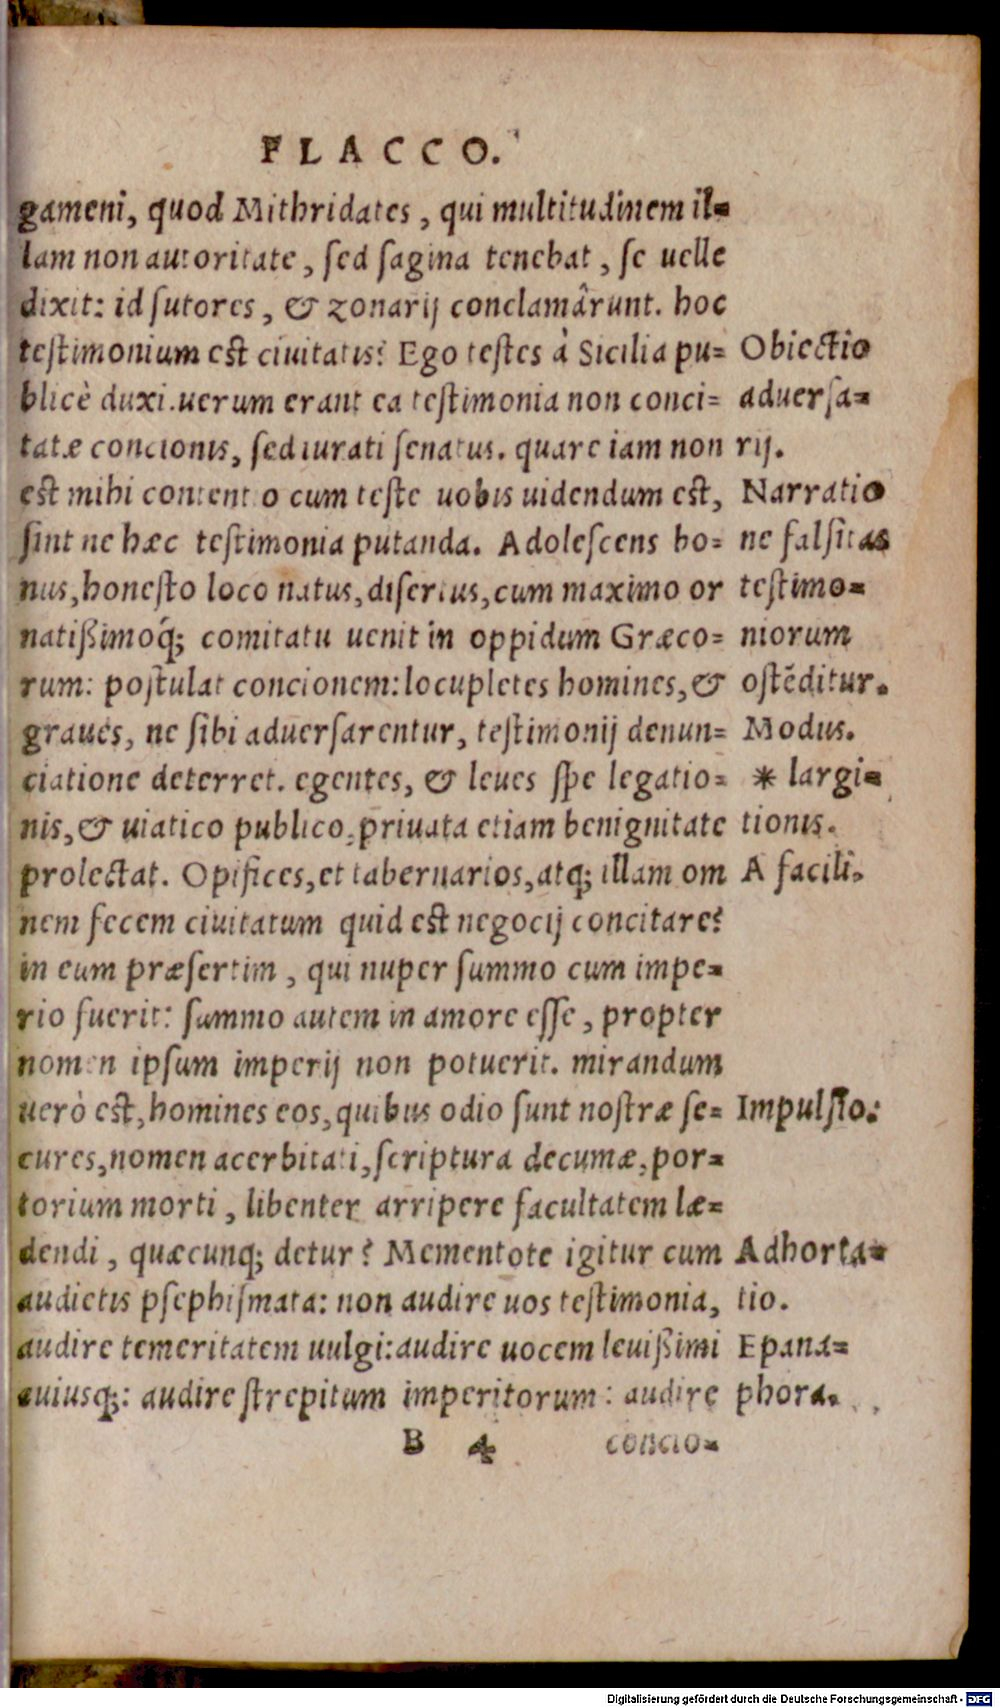 FLACCO.
gameni, quod Mithridates, qui multitudinem il-
lam non autoritate, sed sagina tenebat, se uelle
dixit: id sutores, & zonarij conclamârunt. hoc
testimonium est ciuitatis? Ego testes à Sicilia pu-
blicè duxi. uerum erant ea testimonia non conci-
tatæ concionis, sed iurati senatus. quare iam non
est mihi contentio cum teste uobis uidendum est,
sint ne hæc testimonia putanda. Adolescens bo-
nus, honesto loco natus, disertus, cum maximo or
natißimoq́; comitatu uenit in oppidum Græco-
rum: postulat concionem: locupletes homines, &
graues, ne sibi aduersarentur, testimonij denun-
ciatione deterret. egentes, & leues spe legatio-
nis, & uiatico publico, priuata etiam benignitate
prolectat. Opifices, et tabernarios, atq; illam om
nem fecem ciuitatum quid est negocij concitare?
in eum præsertim, qui nuper summo cum impe-
rio fuerit: summo autem in amore esse, propter
nomen ipsum imperij non potuerit. mirandum
uerò est, homines eos, quibus odio sunt nostræ se-
cures, nomen acerbitati, scriptura decumæ, por-
torium morti, libenter arripere facultatem læ-
dendi, quæcunq; detur? Mementote igitur cum
audietis psephismata: non audire uos testimonia,
audire temeritatem uulgi: audire uocem leuißimi
cuiusq;: audire strepitum imperitorum: audire
B 4 concio-
Obiectio
aduersa-
rij.
Narratio
ne falsitas
testimo-
niorum
ostẽditur.
Modus.
* largi-
tionis.
A facili.
Impulsio.
Adhorta-
tio.
Epana-
phora.
Digitalisierung gefördert durch die Deutsche Forschungsgemeinschaft - DFG